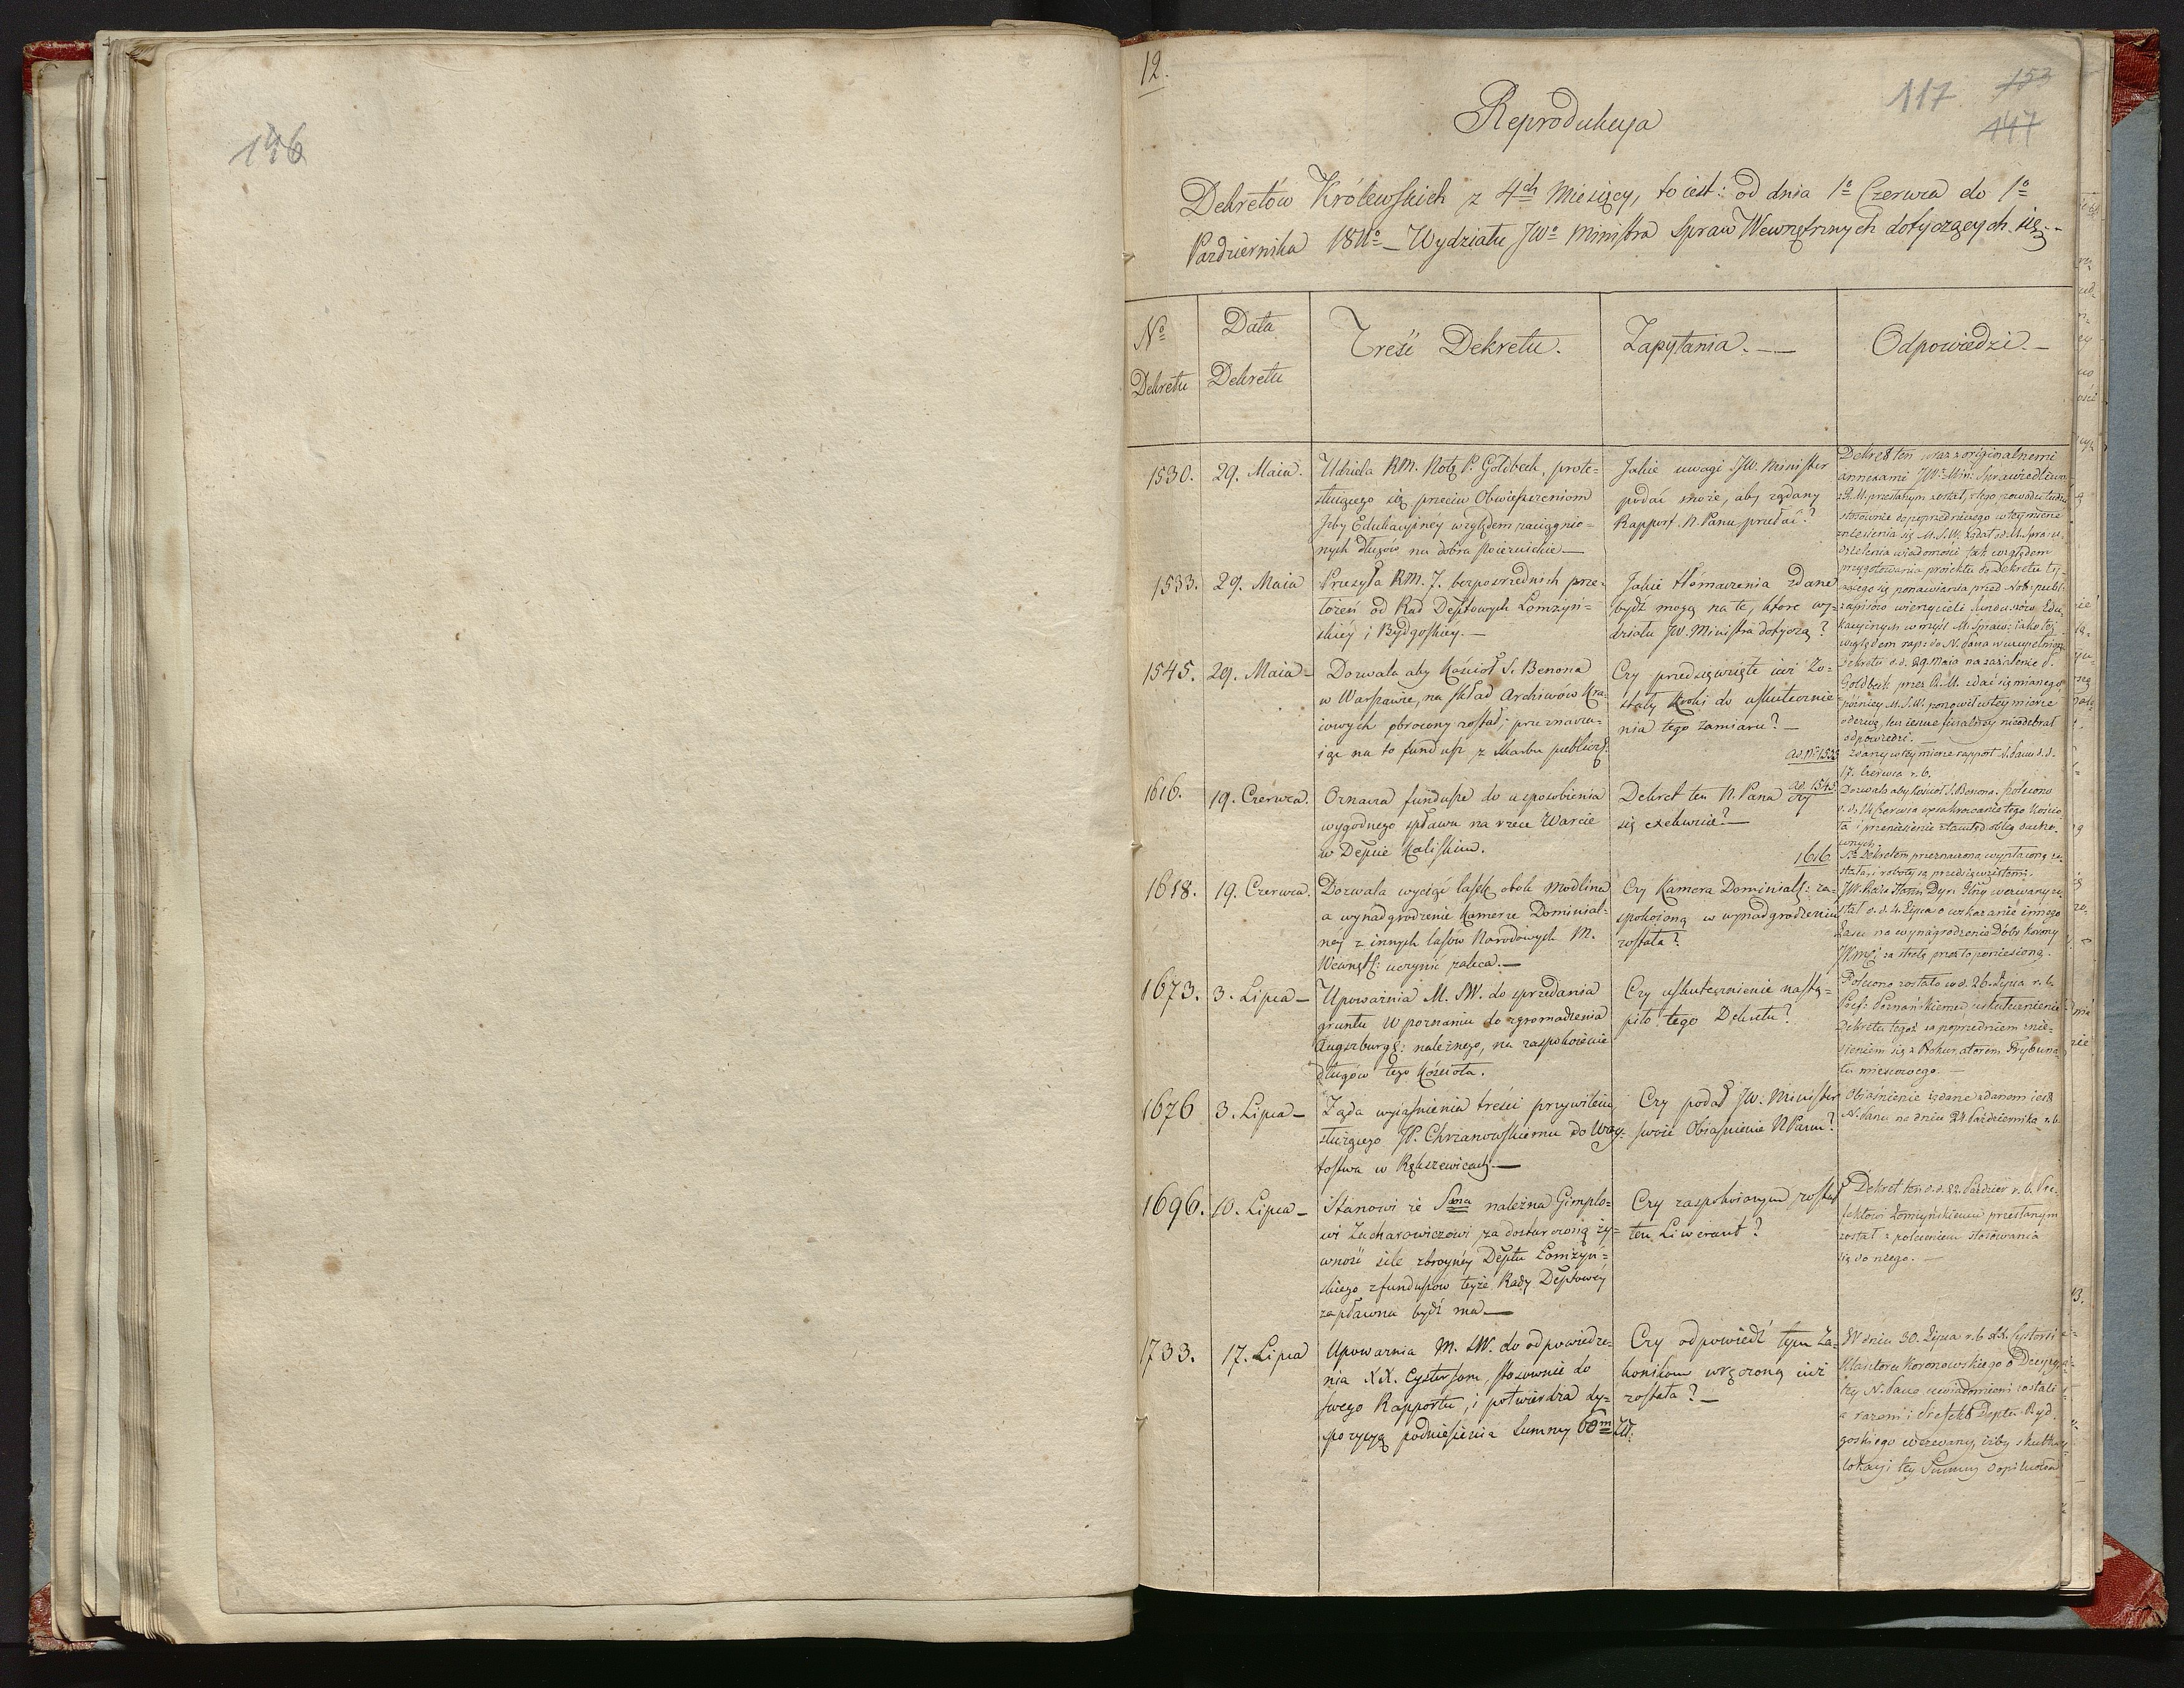 146
12.
117 153
147
Reprodukcya
Dekretów Królewskich z 4ch Miesięcy, to iest: od dnia 1o Czerwca do 1o
Pazdziernika 1811o _ Wydziału JWo Ministra Spraw Wewnętrznych dotyczących się _
No
Dekretu
Data
Dekretu
Treść Dekretu.
Zapytania. —
Odpowiedzi. —
1530.
29. Maia.
Udziela RM. Notę P. Goldbeck, prote-
stuiącego się przeciw Obwieszczeniom
Izby Edukacyinéy względem zaciągnio-
nych długów na dobra Skierniewickie —
Jakie uwagi JW. Minister
podać może, aby żądany
Rapport N. Panu przesłać?
Dekret ten wraz z originalnemi
annexami JWu Min. Sprawiedliwo
z R.M. przesłanym został, z tego powodu tudzież
stosownie do poprzedniczego w tey mierze
zniesienia się M.S.W. żądał od M. Spraw.
udzielenia wiadomości tak względem
przygotowania proiektu do Dekretu ty-
czącego się ponawiania przed Not: publ:
zapisów wierzycieli funduszów Edu-
kacyinych w myśl M. Spraw: iako też
względem rap: do N. Pana w wypełnieniu
Dekretu d.d. 29. Maia na zażalenie P.
Goldbeck przez R.M. zdać się mianego,
późniey M.S.W. ponowił w tey mierze
odezwę, lecz ieszcze finalney nieodebrał
odpowiedzi.
1533.
29. Maia
Przesyła RM. 7. bezpośrednich prze-
łożeń od Rad Deptowych Łomżyń-
skiéy i Bydgoskiéy. —
Jakie tłómaczenia zdane
bydź mogą na te, które wy-
działu JW. Ministra dotyczą?
ad No 1533
Zdany w tey mierze rapport N. Panu d.d.
17. Czerwca r.b.
1545.
29. Maia —
Dozwala aby Kościoł S. Benona
w Warszawie, na skład Archiwów Kra-
iowych obrócony został; przeznacza-
iąc na to fundusz z skarbu publiczg.
Czy przedsięwzięte iuż zo-
stały kroki do uskutecznie-
nia tego zamiaru? —
ad 1545.
Dozwala aby Kościoł S. Benona. Polecono
d.d. 14 Czerwca exsakrowanie tego Kościo-
ła i przeniesienie ztamtąd oblig ducho-
wnych.
1616.
19. Czerwca.
Oznacza fundusze do usposobienia
wygodnego spławu na rzece Warcie
w Depcie Kaliskim.
Dekret ten N. Pana czy
się exekwuie? —
1616
Sa Dekretem przeznaczona wypłaconą zo-
stała, i roboty są przedsięwziętemi.
1618.
19. Czerwca.
Dozwala wyciąć lasek obok Modlina
a wynadgrodzenie Kamerze Dominial-
néy z innych lasów Narodowych M.
Wewnętr: uczynić zaleca. —
Czy Kamera Dominials: za-
spokoioną w wynadgrodzeniu
została?
JW. Radca Stanu Dyr. Gny wezwany zo-
stał d.d. 4. Lipca o wskazanie innego
Lasu na wynagrodzenia Dóbr Korony
JKmci za stratę przez to poniesioną.
1673.
3. Lipca —
Upoważnia M. SW. do sprzedania
gruntu w Poznaniu do zgromadzenia
Augszburgs: należnego, na zaspokoienie
długów tego Kościoła.
Czy uskutecznienie nastą-
piło tego Dekretu?
Polecono zostało pod d. 26. Lipca r.b.
Pref: Poznańskiemu, uskutecznienie
Dekretu tegoż za poprzedniem znie-
sieniem się z Prokuratorem Trybuna-
łu mieyscowego. —
1676
3. Lipca —
Żąda wyiaśnienia treści przywileiu
służącego JP. Chrzanowskiemu do Woy-
tostwa w Rększewicach. —
Czy podał JW. Minister
swoie Obiaśnienie N Panu?
Obiaśnienie żądane zdanem iest
N. Panu na dniu 24 Października r.b.
1696.
10. Lipca —
Stanowi że Sma należna Gimplo-
wi Zacharowiczowi za dostarczoną ży-
wność sile zbroynéy Deptu Łomżyń-
skiego z funduszow teyże Rady Deptowéy
zapłacona bydź ma —
Czy zaspokoionym został
ten Liwerant?
Dekret ten d.d. 22. Paździer r.b. Pre-
fektowi Łomżyńskiemu przesłanym
został z poleceniem stosowania
się do niego. —
1733.
17. Lipca
Upoważnia M. SW. do odpowiedze-
nia XX. Cystersom, stosownie do
swego Rapportu, i potwierdza dy-
spozycyą podniesienia Summy 60m Zł.
Czy odpowiedź tym Za-
konikom wręczoną iuż
została? —
W dniu 30. Lipca r.b. XX. Cystersi
Klasztoru Koronowskiego o Decyzyi
tey N. Pana uwiadomieni zostali
a razem i Prefekt Deptu Byd-
goskiego wezwany, iżby skutku
lokacyi tey Summy dopilnował